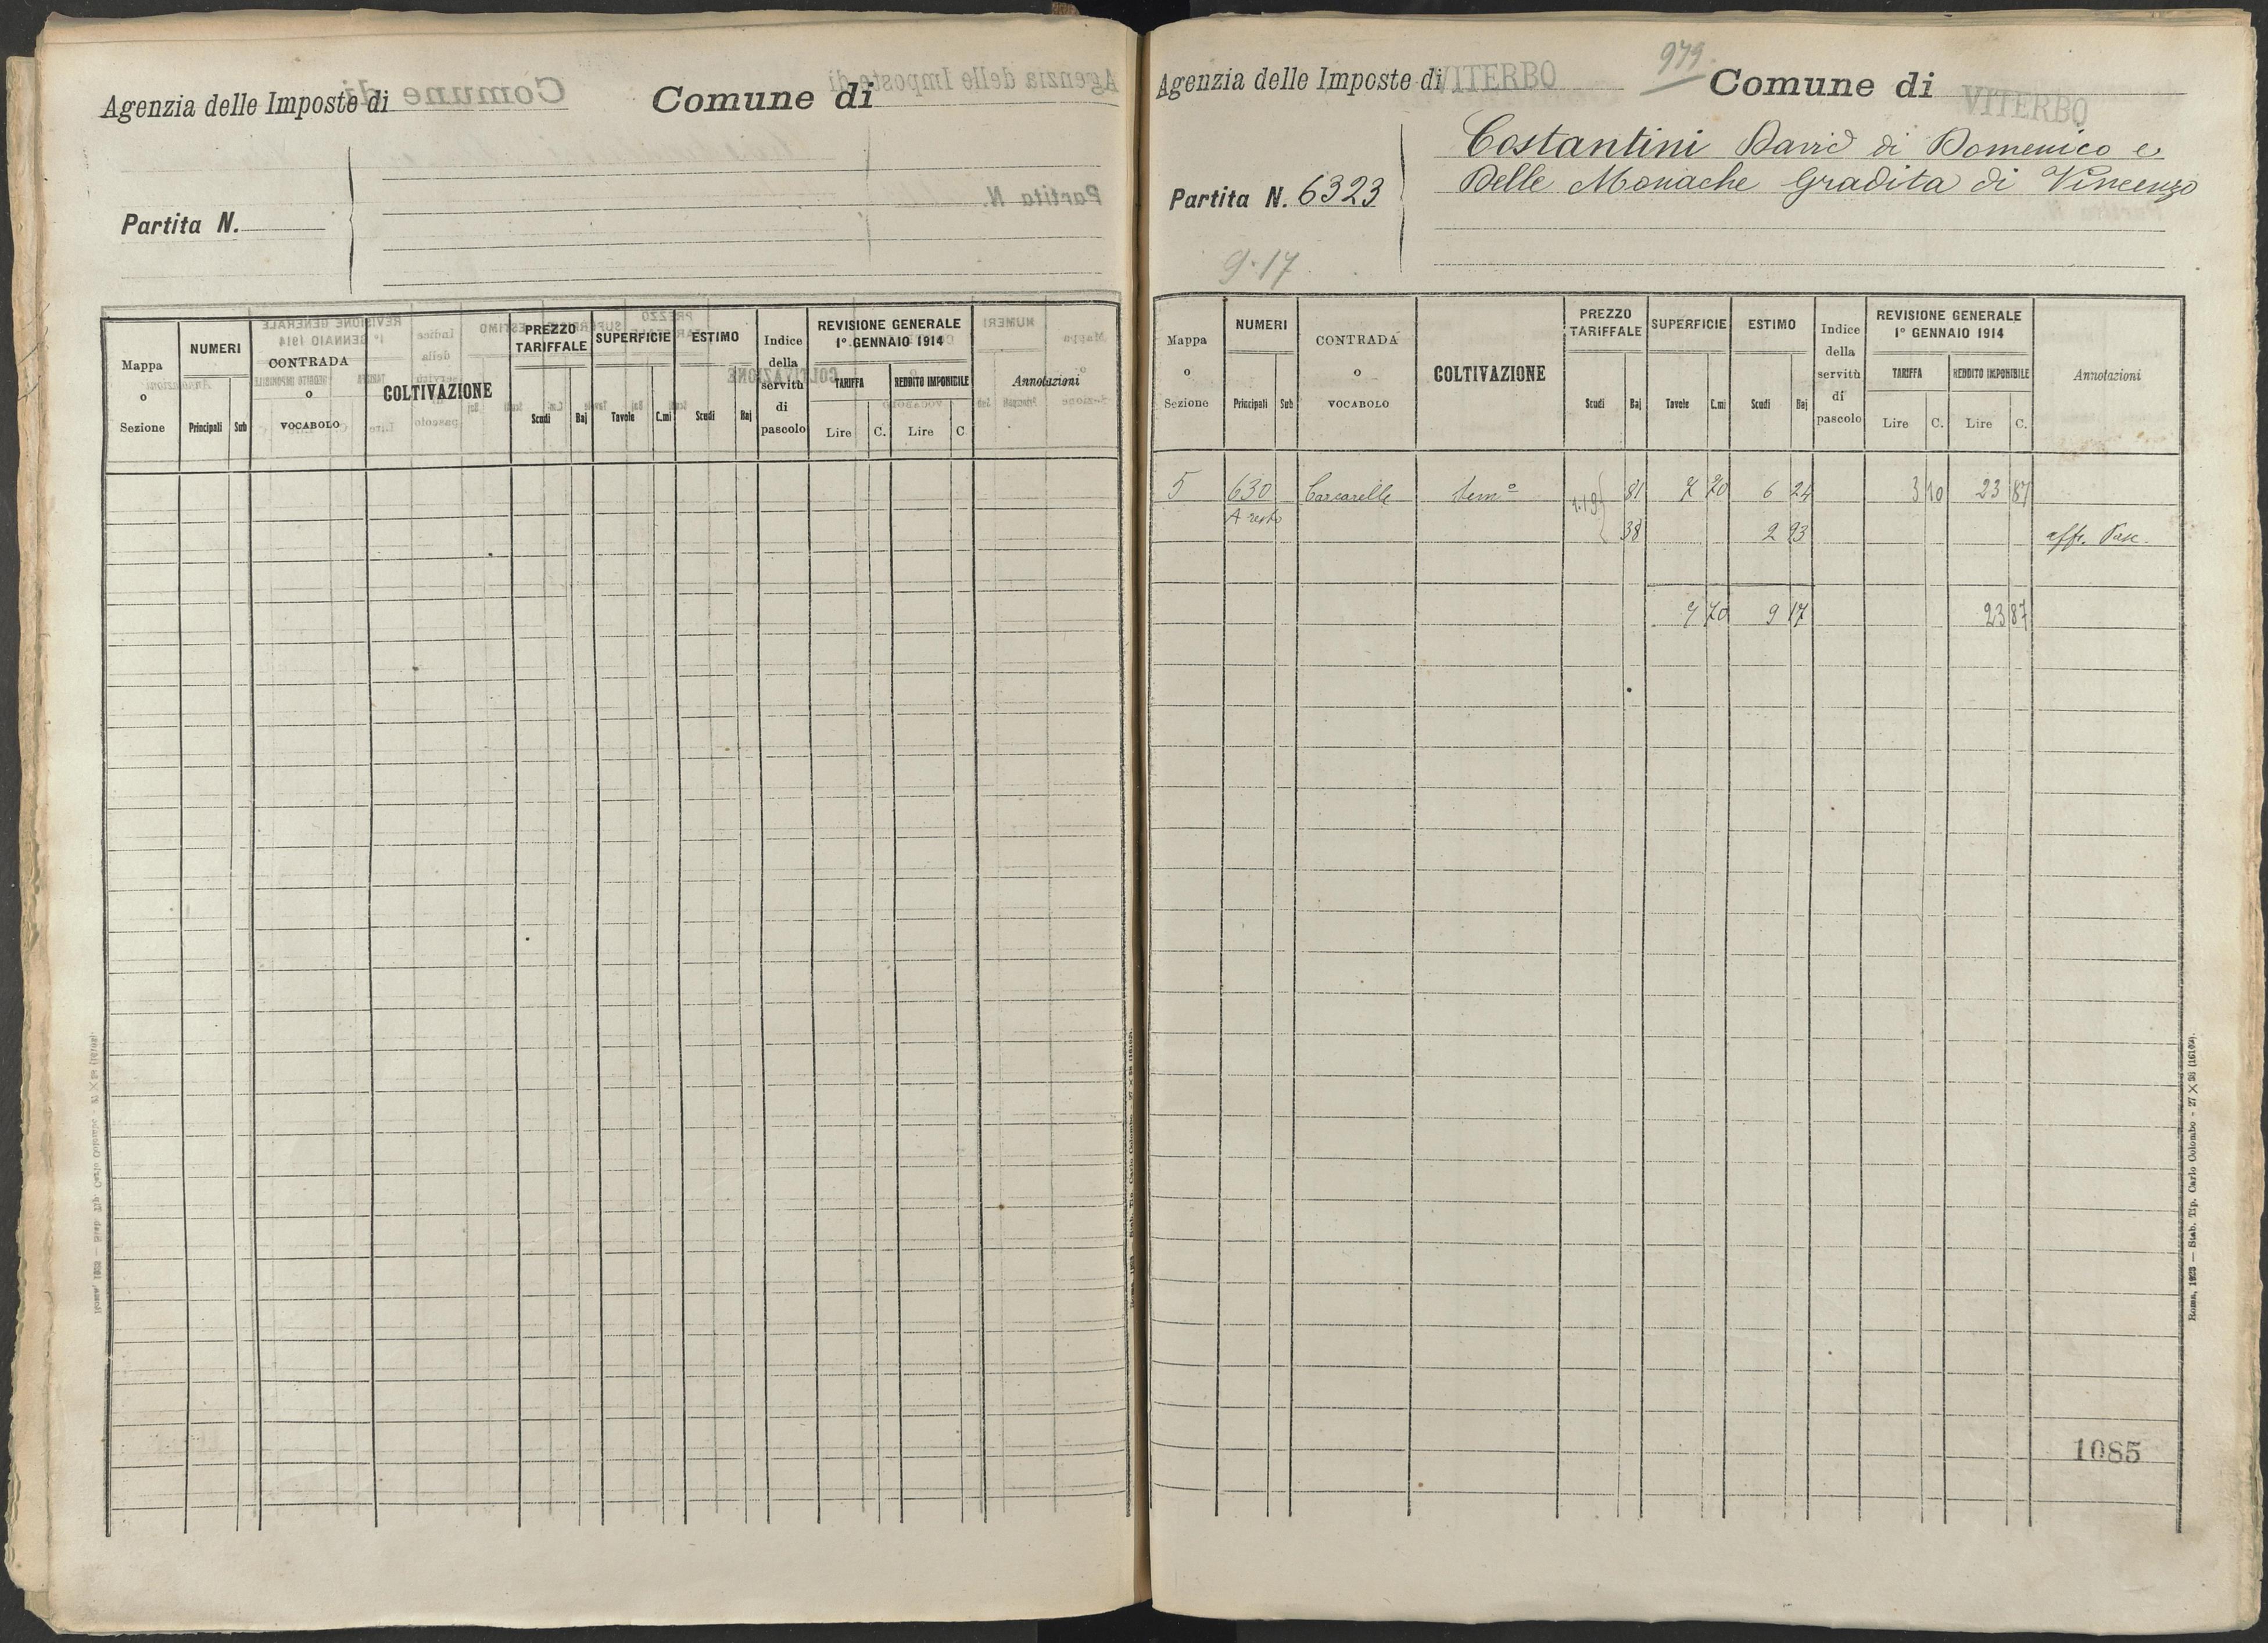 Agenzia delle Imposte di
Comune di
Partita N.
Mappa o Sezione
NUMERI
Principali Sub
CONTRADA o VOCABOLO
COLTIVAZIONE
PREZZO TARIFFALE
Scudi Baj
SUPERFICIE
Tavole C.mi
ESTIMO
Scudi Baj
Indice della servitù di pascolo
REVISIONE GENERALE
1° GENNAIO 1914
TARIFFA REDDITO IMPONIBILE
Lire C. Lire C
Annotazioni
979.
Agenzia delle Imposte di VITERBO Comune di VITERBO
Costantini David di Domenico e
Partita N. 6323
Delle Monache Gradita di Vincenzo
9.17
Mappa o Sezione
NUMERI
Principali Sub
CONTRADA o VOCABOLO
COLTIVAZIONE
PREZZO TARIFFALE
Scudi Baj
SUPERFICIE
Tavole C.mi
ESTIMO
Scudi Baj
Indice della servitù di pascolo
REVISIONE GENERALE
1° GENNAIO 1914
TARIFFA REDDITO IMPONIBILE
Lire C. Lire C.
Annotazioni
5 630 Cascarelle Sem° 1.19 81 7 70 6 24 3 10 23 87
A resto 38 2 93 affr. Pasc.
7 70 9 17 23 87
1085
Roma, 1923 — Stab. Tip. Carlo Colombo - 27 X 38 (16109).